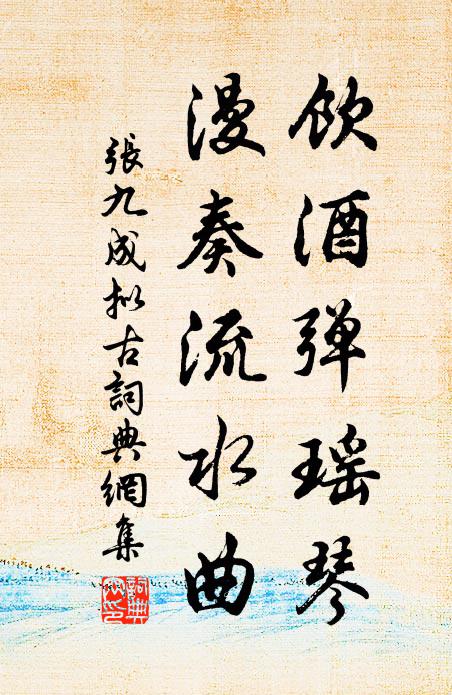 飲酒弹瑶琴
漫奏流水曲
張九成拟古詞典網集